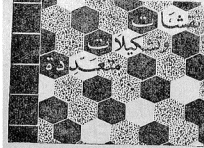 نقشات
وتشكيلات
متعددة